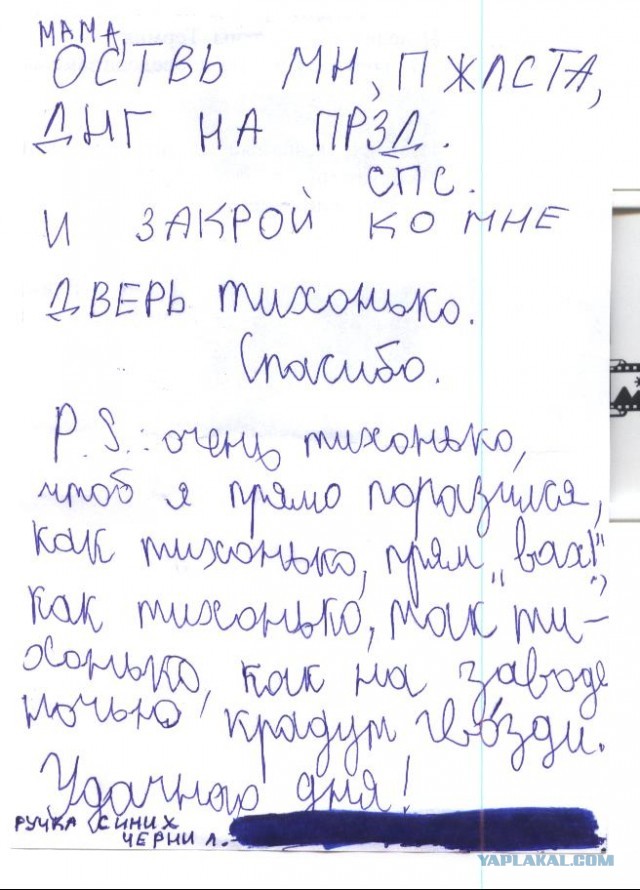 МАМА,
ОСТВЬ МН, ПЖЛСТА,
ДНГ НА ПРЗД.
СПС.
И ЗАКРОЙ КО МНЕ
ДВЕРЬ тихонько.
Спасибо.
P.S.: очень тихонько,
чтоб я прямо поразился,
как тихонько, прям „вах!",
как тихонько, так ти-
хонько, как на заводе
ночью крадут гвозди.
Удачного дня!
РУЧКА СИНИХ
ЧЕРНИЛ.
YAPLAKAL.COM